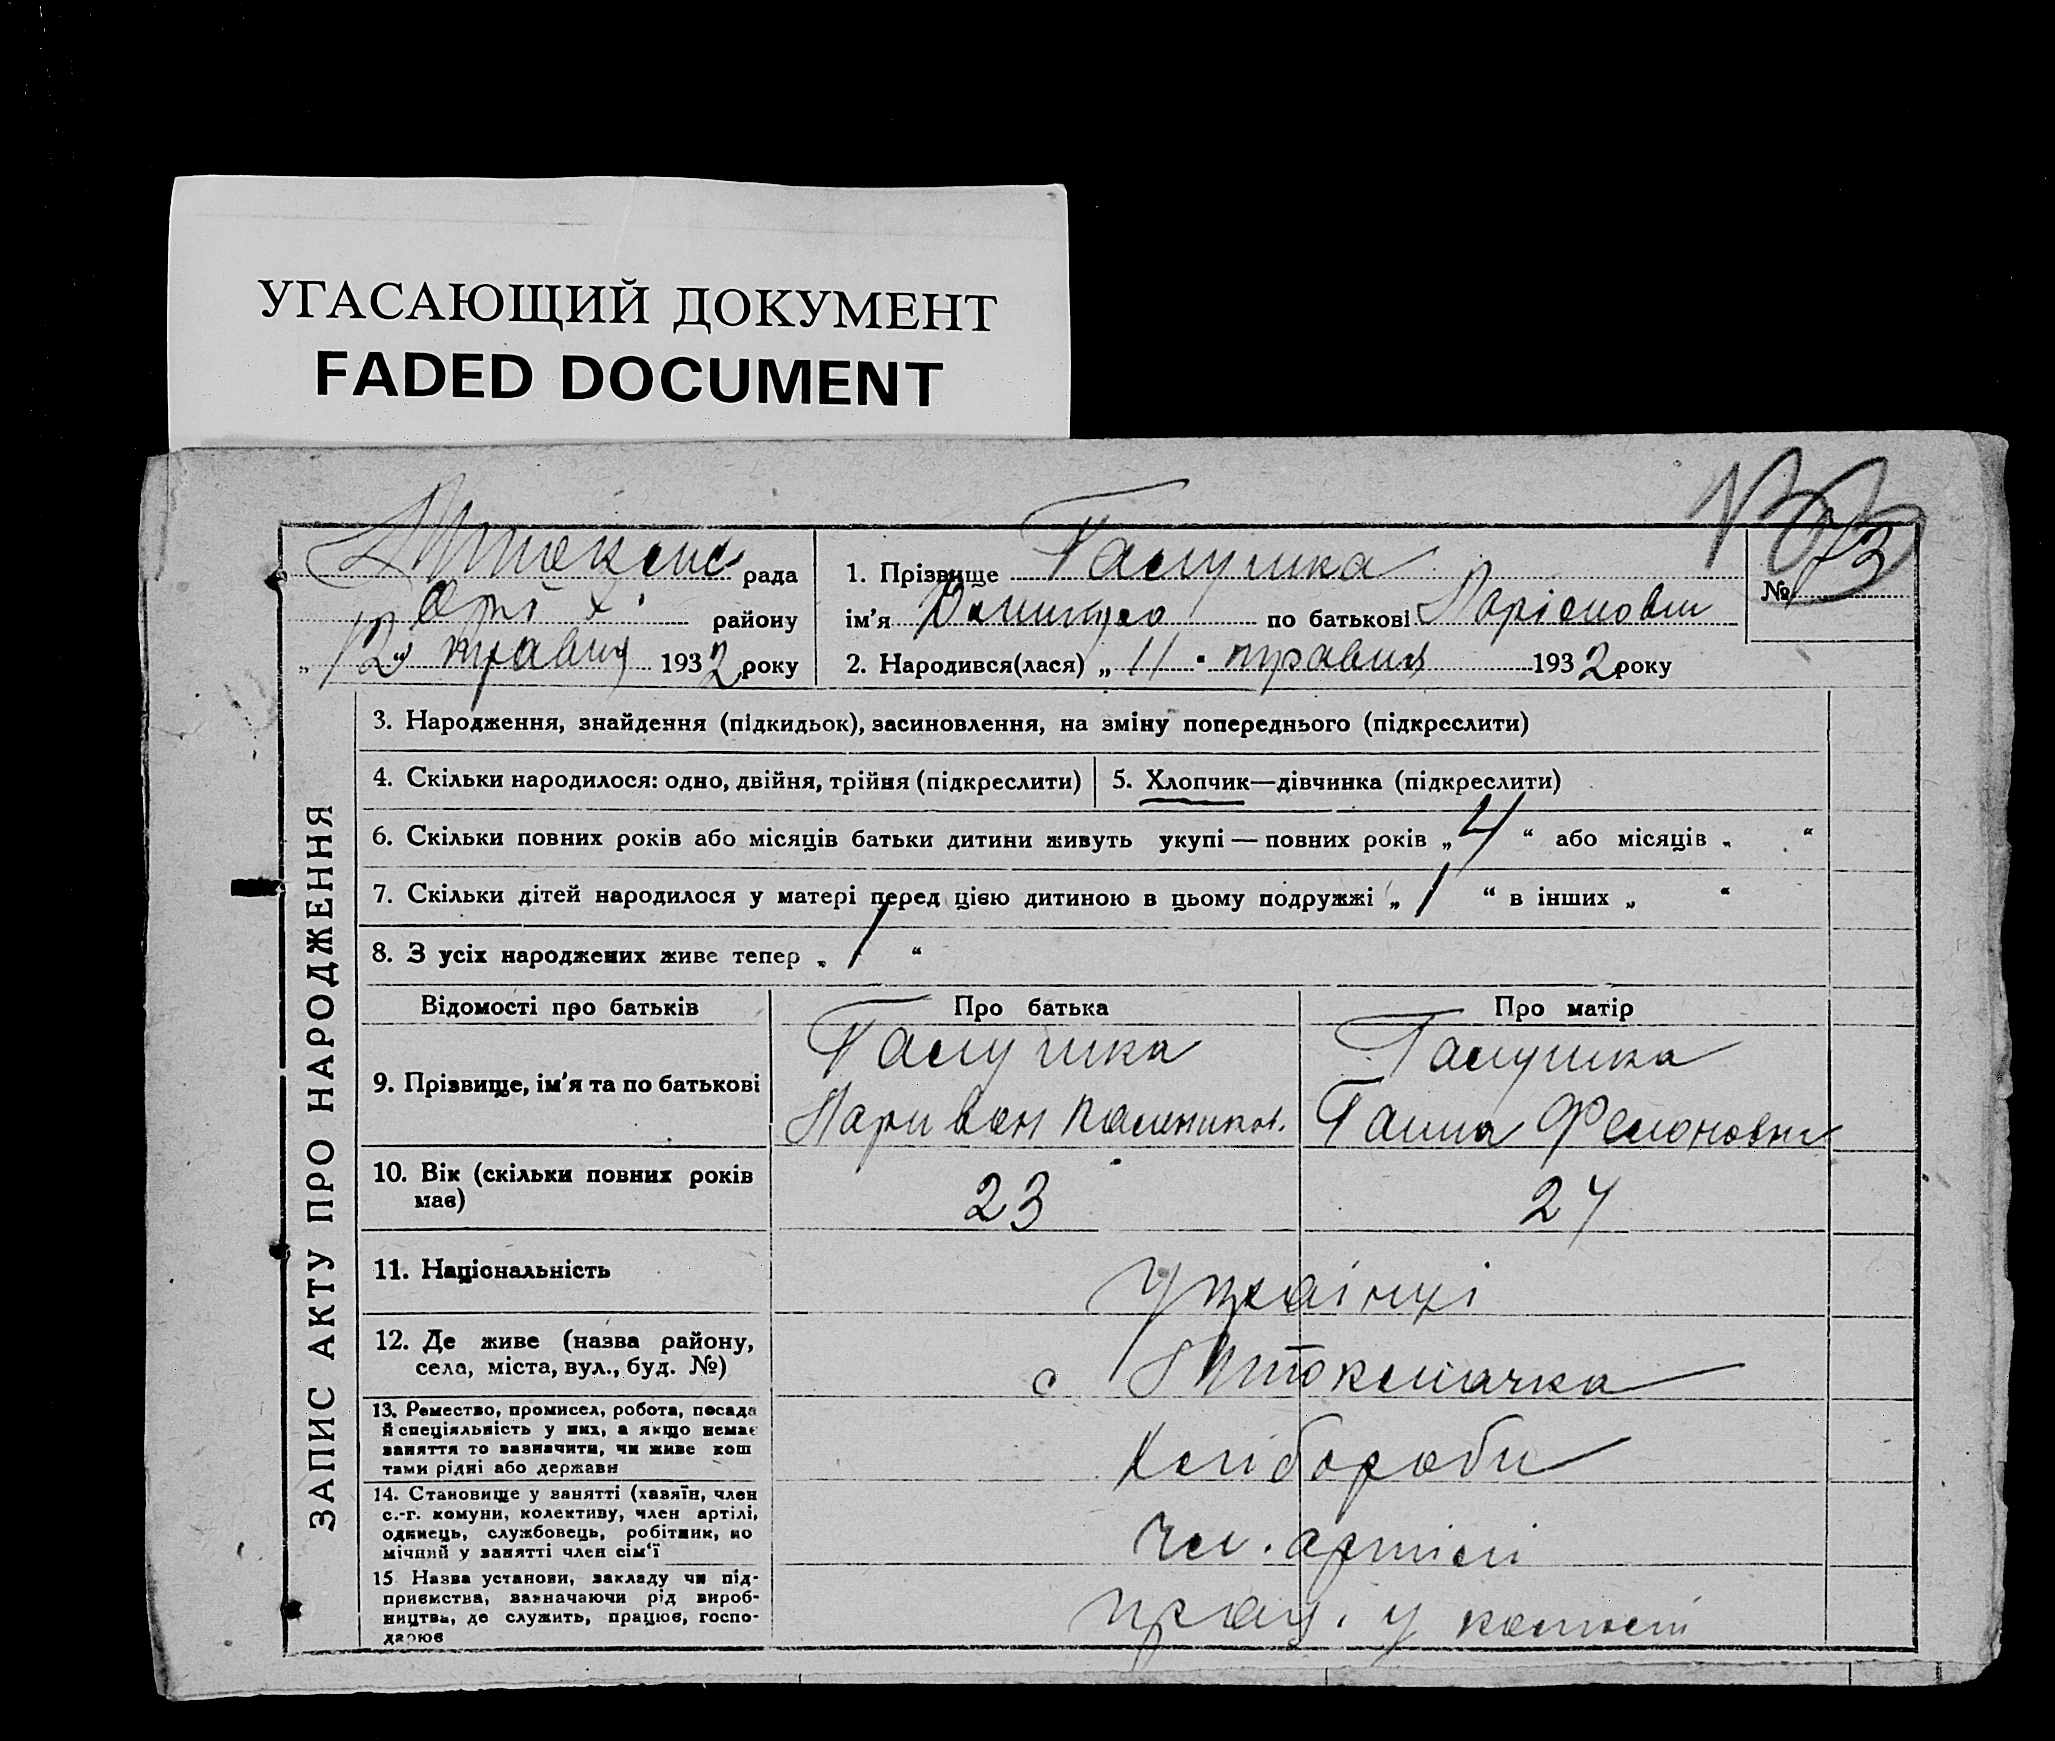 УГАСАЮЩИЙ ДОКУМЕНТ
FADED DOCUMENT
рада
району
„12“ травня 1932 року
1. Прізвище Галушка
№ 73
ім'я по батькові
2. Народився(лася) „11" травня 1932 року
ЗАПИС АКТУ ПРО НАРОДЖЕННЯ
3. Народження, знайдення (підкидьок), засиновлення, на зміну попереднього (підкреслити)
4. Скільки народилося: одно, двійня, трійня (підкреслити)
5. Хлопчик—дівчинка (підкреслити)
6. Скільки повних років або місяців батьки дитини живуть укупі — повних років „4“ або місяців „ “
7. Скільки дітей народилося у матері перед цією дитиною в цьому подружжі „1“ в інших „ “
8. З усіх народжених живе тепер „1“
Відомості про батьків Про батька Про матір
9. Прізвище, ім'я та по батькові
Галушка Галушка
Ганна
10. Вік (скільки повних років має)
23 24
11. Національність
Українці
12. Де живе (назва району, села, міста, вул., буд. №)
с
13. Ремество, промисел, робота, посада й спеціяльність у них, а якщо немає заняття то зазначити, чи живе коштами рідні або держави
Хлібороби
14. Становище у занятті (хазяїн, член с.-г. комуни, колективу, член артілі, одинець, службовець, робітник, помічний у занятті член сім'ї
Чл. артілі
15 Назва установи, закладу чи підприємства, зазначаючи рід виробництва, де служить, працює, господарює
прац. у